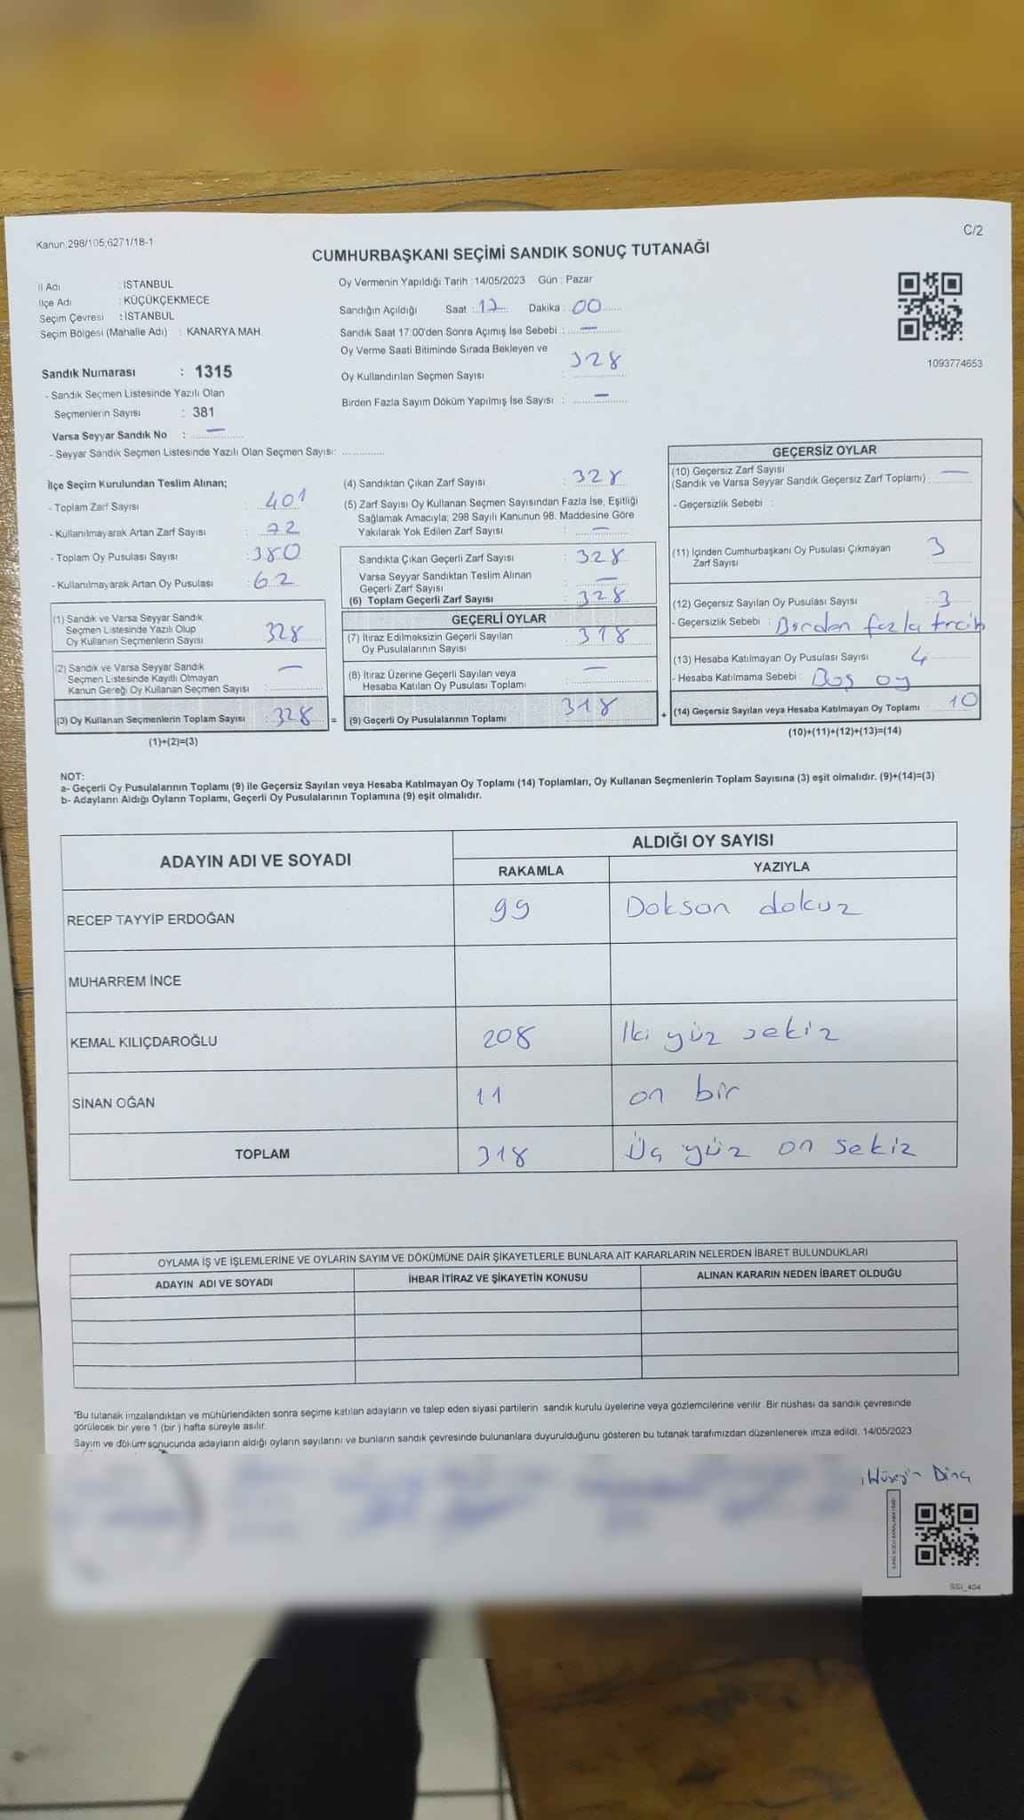 Kanun:298/105,6271/18-1
C/2
CUMHURBAŞKANI SEÇİMİ SANDIK SONUÇ TUTANAĞI
İl Adı : İSTANBUL
İlçe Adı : KÜÇÜKÇEKMECE
Seçim Çevresi : İSTANBUL
Seçim Bölgesi (Mahalle Adı) : KANARYA MAH.
Sandık Numarası : 1315
- Sandık Seçmen Listesinde Yazılı Olan
Seçmenlerin Sayısı : 381
Varsa Seyyar Sandık No : —
- Seyyar Sandık Seçmen Listesinde Yazılı Olan Seçmen Sayısı:
Oy Vermenin Yapıldığı Tarih : 14/05/2023 Gün : Pazar
Sandığın Açıldığı Saat : 17 Dakika : 00
Sandık Saat 17:00'den Sonra Açımış İse Sebebi : —
Oy Verme Saati Bitiminde Sırada Bekleyen ve
Oy Kullandırılan Seçmen Sayısı : 328
Birden Fazla Sayım Döküm Yapılmış İse Sayısı : —
1093774653
İlçe Seçim Kurulundan Teslim Alınan;
- Toplam Zarf Sayısı : 401
- Kullanılmayarak Artan Zarf Sayısı : 72
- Toplam Oy Pusulası Sayısı : 380
- Kullanılmayarak Artan Oy Pusulası : 62
(1) Sandık ve Varsa Seyyar Sandık
Seçmen Listesinde Yazılı Olup
Oy Kullanan Seçmenlerin Sayısı : 328
(2) Sandık ve Varsa Seyyar Sandık
Seçmen Listesinde Kayıtlı Olmayan
Kanun Gereği Oy Kullanan Seçmen Sayısı : —
(3) Oy Kullanan Seçmenlerin Toplam Sayısı : 328 =
(1)+(2)=(3)
(4) Sandıktan Çıkan Zarf Sayısı : 328
(5) Zarf Sayısı Oy Kullanan Seçmen Sayısından Fazla İse, Eşitliği
Sağlamak Amacıyla; 298 Sayılı Kanunun 98. Maddesine Göre
Yakılarak Yok Edilen Zarf Sayısı : —
Sandıkta Çıkan Geçerli Zarf Sayısı : 328
Varsa Seyyar Sandıktan Teslim Alınan
Geçerli Zarf Sayısı : —
(6) Toplam Geçerli Zarf Sayısı : 328
GEÇERLİ OYLAR
(7) İtiraz Edilmeksizin Geçerli Sayılan
Oy Pusulalarının Sayısı : 318
(8) İtiraz Üzerine Geçerli Sayılan veya
Hesaba Katılan Oy Pusulası Toplamı : —
(9) Geçerli Oy Pusulalarının Toplamı : 318 +
GEÇERSİZ OYLAR
(10) Geçersiz Zarf Sayısı
(Sandık ve Varsa Seyyar Sandık Geçersiz Zarf Toplamı) : —
- Geçersizlik Sebebi :
(11) İçinden Cumhurbaşkanı Oy Pusulası Çıkmayan
Zarf Sayısı : 3
(12) Geçersiz Sayılan Oy Pusulası Sayısı : 3
- Geçersizlik Sebebi : Birden fazla tercih
(13) Hesaba Katılmayan Oy Pusulası Sayısı : 4
- Hesaba Katılmama Sebebi : Boş oy
(14) Geçersiz Sayılan veya Hesaba Katılmayan Oy Toplamı : 10
(10)+(11)+(12)+(13)=(14)
NOT:
a- Geçerli Oy Pusulalarının Toplamı (9) ile Geçersiz Sayılan veya Hesaba Katılmayan Oy Toplamı (14) Toplamları, Oy Kullanan Seçmenlerin Toplam Sayısına (3) eşit olmalıdır. (9)+(14)=(3)
b- Adayların Aldığı Oyların Toplamı, Geçerli Oy Pusulalarının Toplamına (9) eşit olmalıdır.
ADAYIN ADI VE SOYADI
ALDIĞI OY SAYISI
RAKAMLA YAZIYLA
RECEP TAYYİP ERDOĞAN 99 Doksan dokuz
MUHARREM İNCE
KEMAL KILIÇDAROĞLU 208 İki yüz sekiz
SİNAN OĞAN 11 on bir
TOPLAM 318 Üç yüz on sekiz
OYLAMA İŞ VE İŞLEMLERİNE VE OYLARIN SAYIM VE DÖKÜMÜNE DAİR ŞİKAYETLERLE BUNLARA AİT KARARLARIN NELERDEN İBARET BULUNDUKLARI
ADAYIN ADI VE SOYADI İHBAR İTİRAZ VE ŞİKAYETİN KONUSU ALINAN KARARIN NEDEN İBARET OLDUĞU
"Bu tutanak imzalandıktan ve mühürlendikten sonra seçime katılan adayların ve talep eden siyasi partilerin sandık kurulu üyelerine veya gözlemcilerine verilir. Bir nüshası da sandık çevresinde
görülecek bir yere 1 (bir) hafta süreyle asılır.
Sayım ve döküm sonucunda adayların aldığı oyların sayılarını ve bunların sandık çevresinde bulunanlara duyurulduğunu gösteren bu tutanak tarafımızdan düzenlenerek imza edildi. 14/05/2023
Hüseyin Dinç
SSI_404